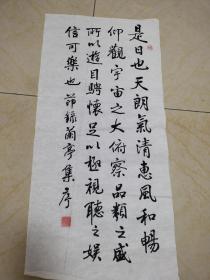 是日也天朗氣清惠風和暢
仰觀宇宙之大俯察品類之盛
所以遊目騁懷足以極視聽之娱
信可樂也 節録蘭亭集序